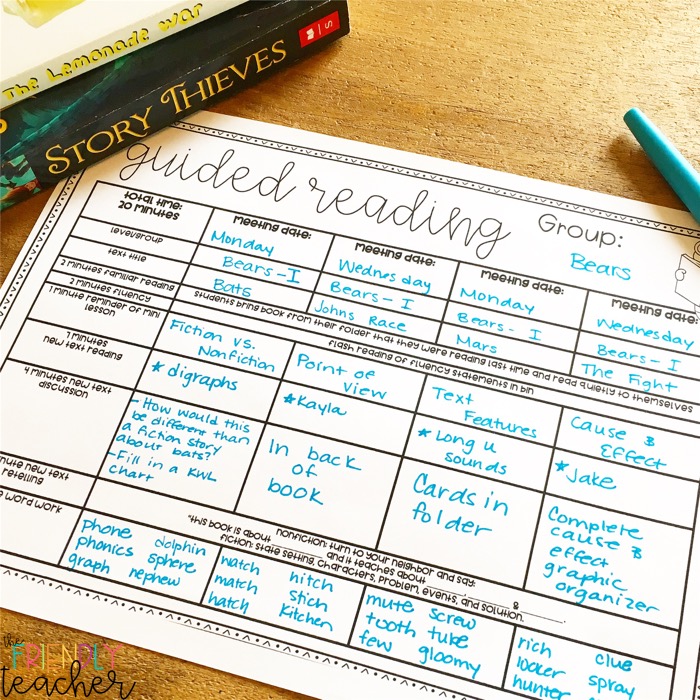 The Lemonade War
STORY THIEVES
guided reading
Group:
Bears
total time:
20 minutes
meeting date:
Monday
meeting date:
Wednesday
meeting date:
Monday
meeting date:
Wednesday
level/group
Bears - I
Bears - I
Bears - I
Bears - I
text title
Bats
Johns Race
Mars
The Fight
2 minutes familiar reading
students bring book from their folder that they were reading last time and read quietly to themselves
2 minutes fluency
flash reading of fluency statements in bin
1 minute reminder of mini
lesson
Fiction vs.
Nonfiction
Point of
view
Text
Features
Cause &
Effect
7 minutes
new text reading
* digraphs
* Kayla
* Long u
sounds
* Jake
4 minutes new text
discussion
- How would this
be different than
a fiction story
about bats?
- Fill in a KWL
chart
In back
of
book
Cards in
folder
Complete
cause &
effect
graphic
organizer
minute new text
retelling
nonfiction: turn to your neighbor and say:
"this book is about ______ and it teaches about ______ & ______.
fiction: state setting, characters, problem, events, and solution.
word work
phone dolphin
phonics sphere
graph nephew
watch hitch
match stich
hatch kitchen
mute screw
tooth tube
few gloomy
rich clue
hunter spray
the
FRIENDLY
teacher